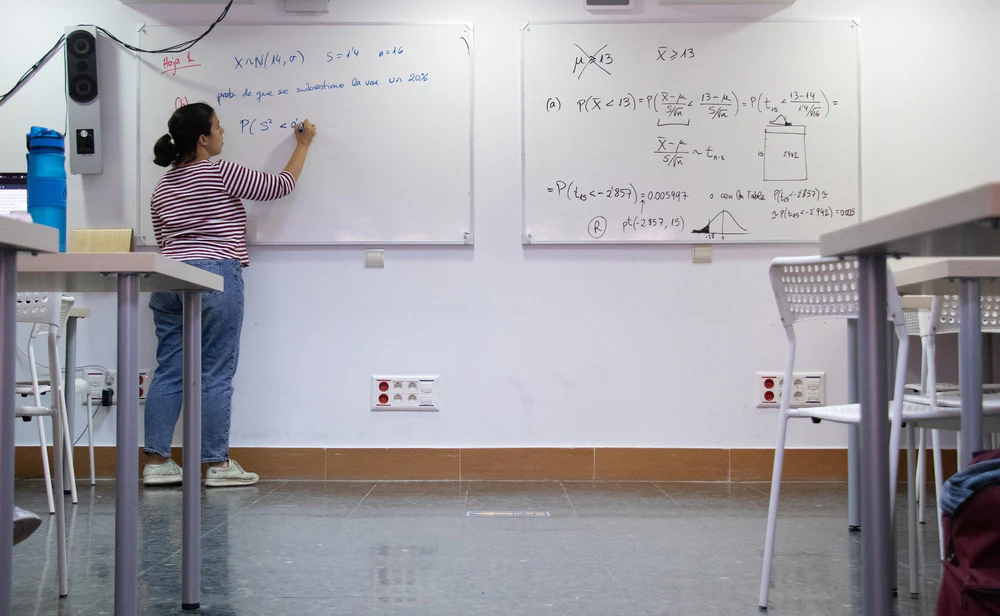 Hoja 1
X~N(14, σ) S=1'4 n=16
(b) prob. de que se subestime la var. un 20%
P(S² < 0'
μ≥13 X̄≥13
(a) P(X̄<13) = P(X̄-μ/S/√n < 13-μ/S/√n) = P(t₁₅ < 13-14/1'4/√16) =
X̄-μ/S/√n ~ tₙ₋₁
15 2942
= P(t₁₅<-2'857) = 0.005997 o con la Tabla P(t₁₅<-2'857)≃
≃P(t₁₅<-2'942)=0.005
R pt(-2.857, 15)
0